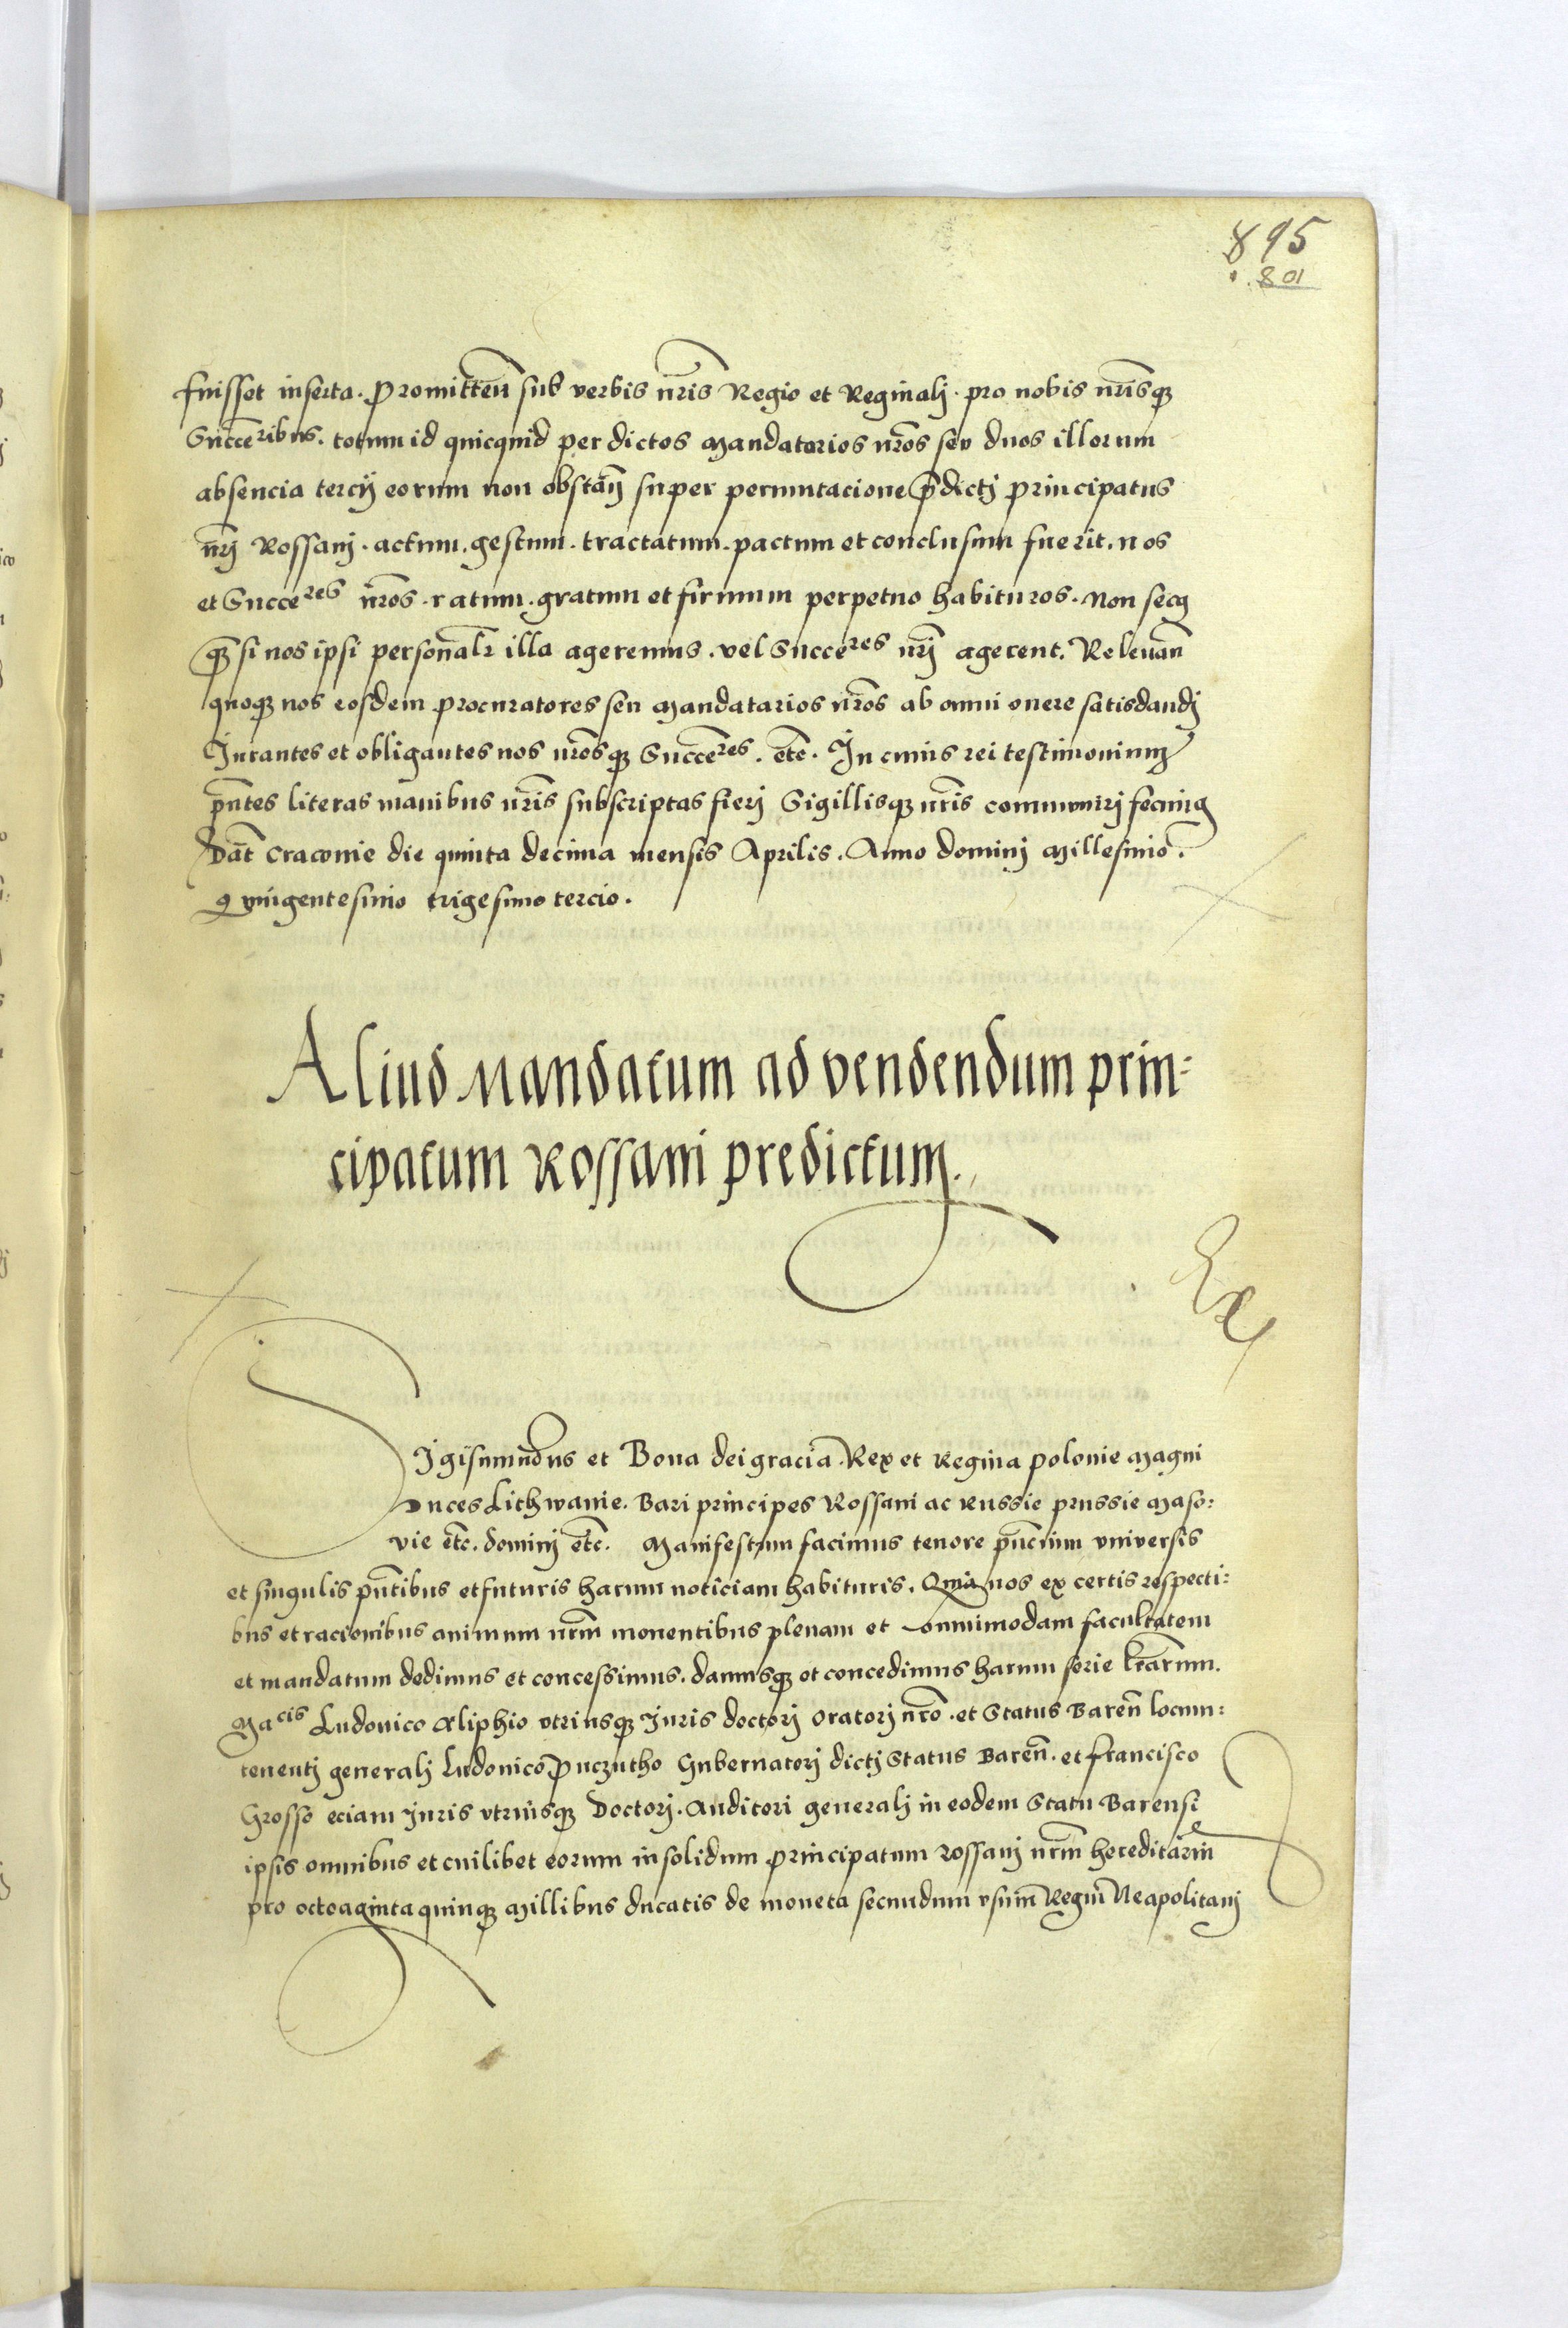 895
801
fuisset inserta. Promitteñ sub verbis nr̃is Regio et Reginalj. pro nobis nr̃isqꝫ
Succe͠ribus. totum id quicquid per dictos Mandatorios nr̃os seu duos illorum
absencia tercij eorum non obstañ super permutacione p̃dictj principatus
nr̃j Rossanj. actum. gestum. tractatum. pactum et conclusum fuerit. nos
et Succeres nr̃os. ratum. gratum et firmum perpetuo habituros. Non secꝯ
qꝫ̃ si nos ipsi personalr̃ illa ageremus. vel Succeres nr̃j agerent. Releuañ
quoqꝫ nos eosdem procuratores seu Mandatarios nr̃os ab omni onere satisdandj
Jurantes et obligantes nos nr̃osqꝫ Succe͠res. etc̃. In cuius rei testimonium
p̃ntes literas manibus nr̃is subscriptas fierj Sigillisqꝫ nr̃is communirj fecimꝯ
Dat̃ Cracouie die quinta decima mensis Aprilis. Anno dominj Millesimo.
quingentesimo trigesimo tercio.
Aliud Mandatum ad vendendum prin=
cipatum Rossani predictum.
Sigismundus et Bona dei gracia. Rex et Regina Polonie Magni
Duces Lithwanie. Bari principes Rossani ac Russie prussie Maso:
vie etc̃. dominj etc̃. Manifestum facimus tenore p̃ncium vniversis
et singulis p̃ntibus et futuris harum noticiam habituris. Quia nos ex certis respecti:
bus et racionibus animum nr̃m monentibus plenam et omnimodam facultatem
et mandatum dedimus et concessimus. damusqꝫ et concedimus harum serie lr̃arum.
Macis Ludouico Aliphio vtriusqꝫ Juris doctorj Oratorj nr̃o. et Status Bareñ locum:
tenentj generalj Ludouico Puczutho Gubernatorj dictj Status Bareñ. et francisco
Grosso eciam Juris vtriusqꝫ Doctorj. Auditori generalj in eodem Statu Barensi
ipsis omnibus et cuilibet eorum insolidum principatum Rossanj nr̃m hereditariũ
pro octoaginta quinqꝫ Millibus ducatis de moneta secundum vsum Regni Neapolitanj